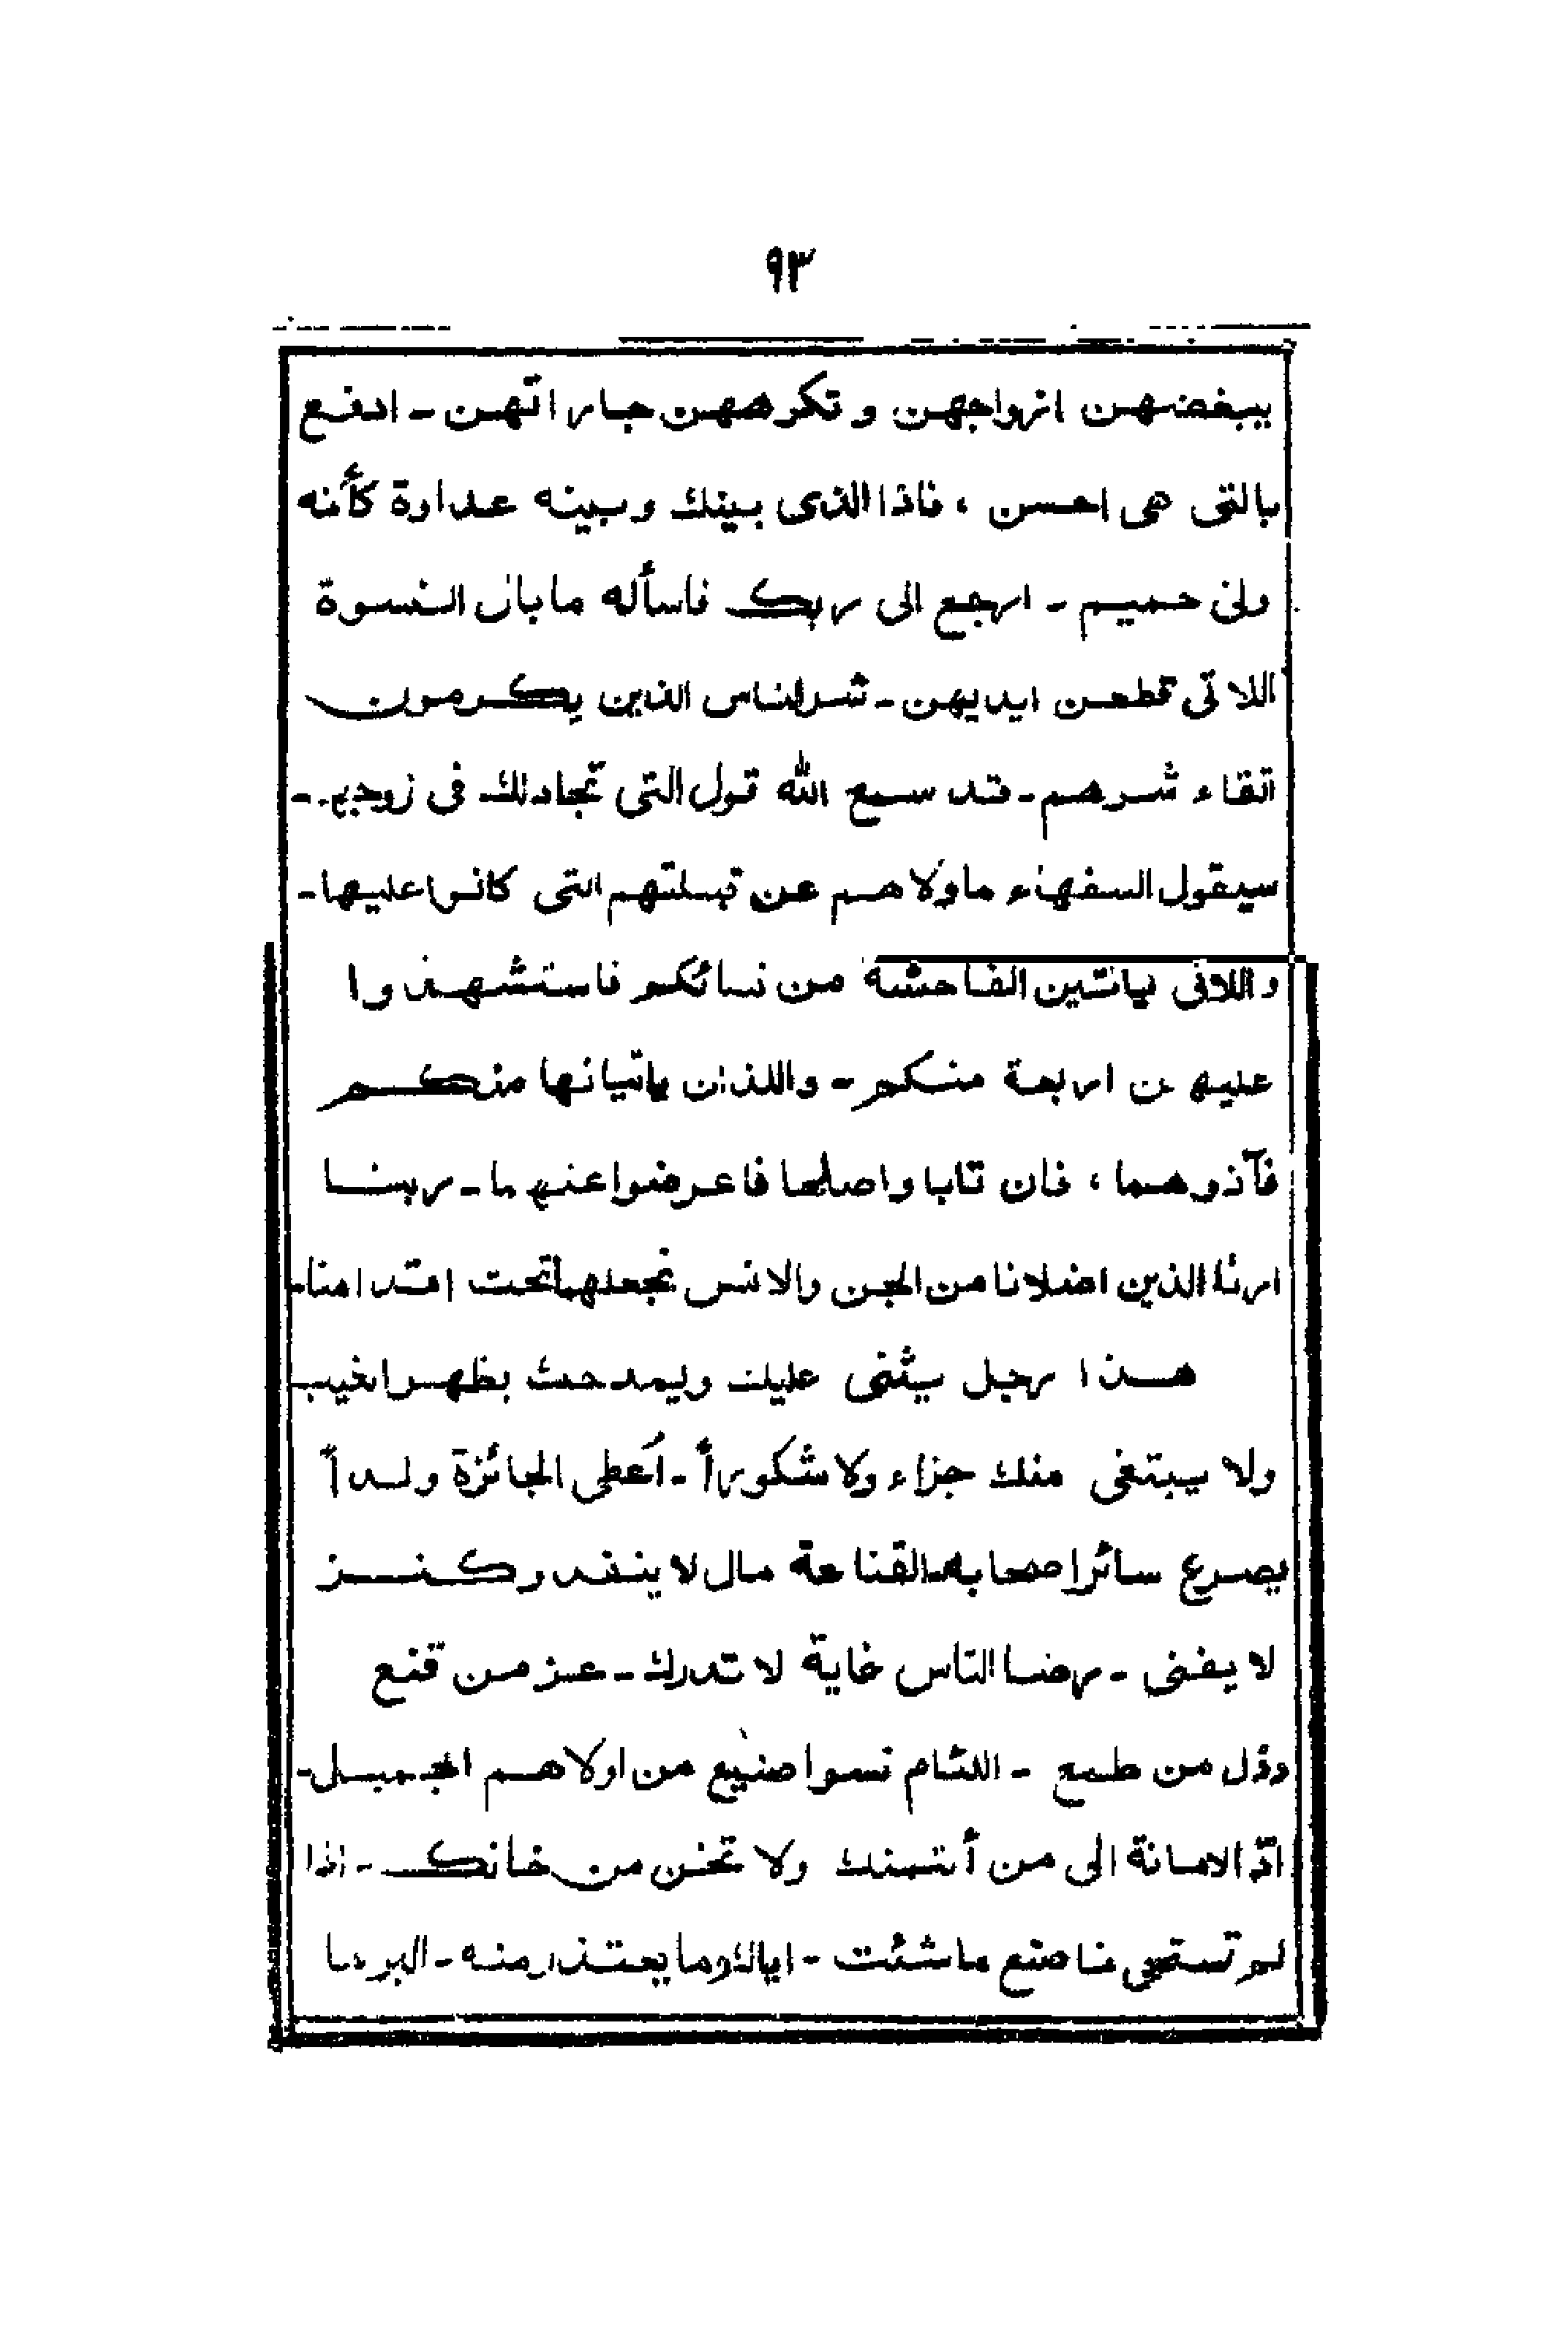 ٩٣
يبغضهن ازواجهن و تكرههن جاراتهن - ادفع
بالتى هى احسن ، فاذا الذى بينك وبينه عداوة كأنه
ولى حميم - ارجع الى ربك فاسأله ما بال النسوة
اللاتى قطعن ايديهن - شرالناس الذين يكرمون
اتقاء شرهم - قد سمع الله قول التى تجادلك فى زوجها -
سيقول السفهاء ماولاهم عن قبلتهم التى كانوا عليها -
واللاتى ياتين الفاحشة من نسائكم فاستشهدوا
عليهن اربعة منكم - واللذان ياتيانها منكم
فآذوهما ، فان تابا واصلحا فاعرضوا عنهما - ربنا
ارنا الذين اضلانا من الجن والانس نجعلهما تحت اقدامنا -
هذا رجل يثنى عليك ويمدحك بظهر الغيب
ولا يبتغى منك جزاء ولا شكوراً - أعطى الجائزة ولداً
يصرع سائر اصحابه - القناعة مال لا ينفد وكنز
لا يفنى - رضا الناس غاية لا تدرك - عز من قنع
وذل من طمع - اللئام نسوا صنيع من اولاهم الجميل -
ادّ الامانة الى من أئتمنك ولا تخن من خانك - اذا
لم تستحى فاصنع ما شئت - اياك وما يعتذر منه - البر ما